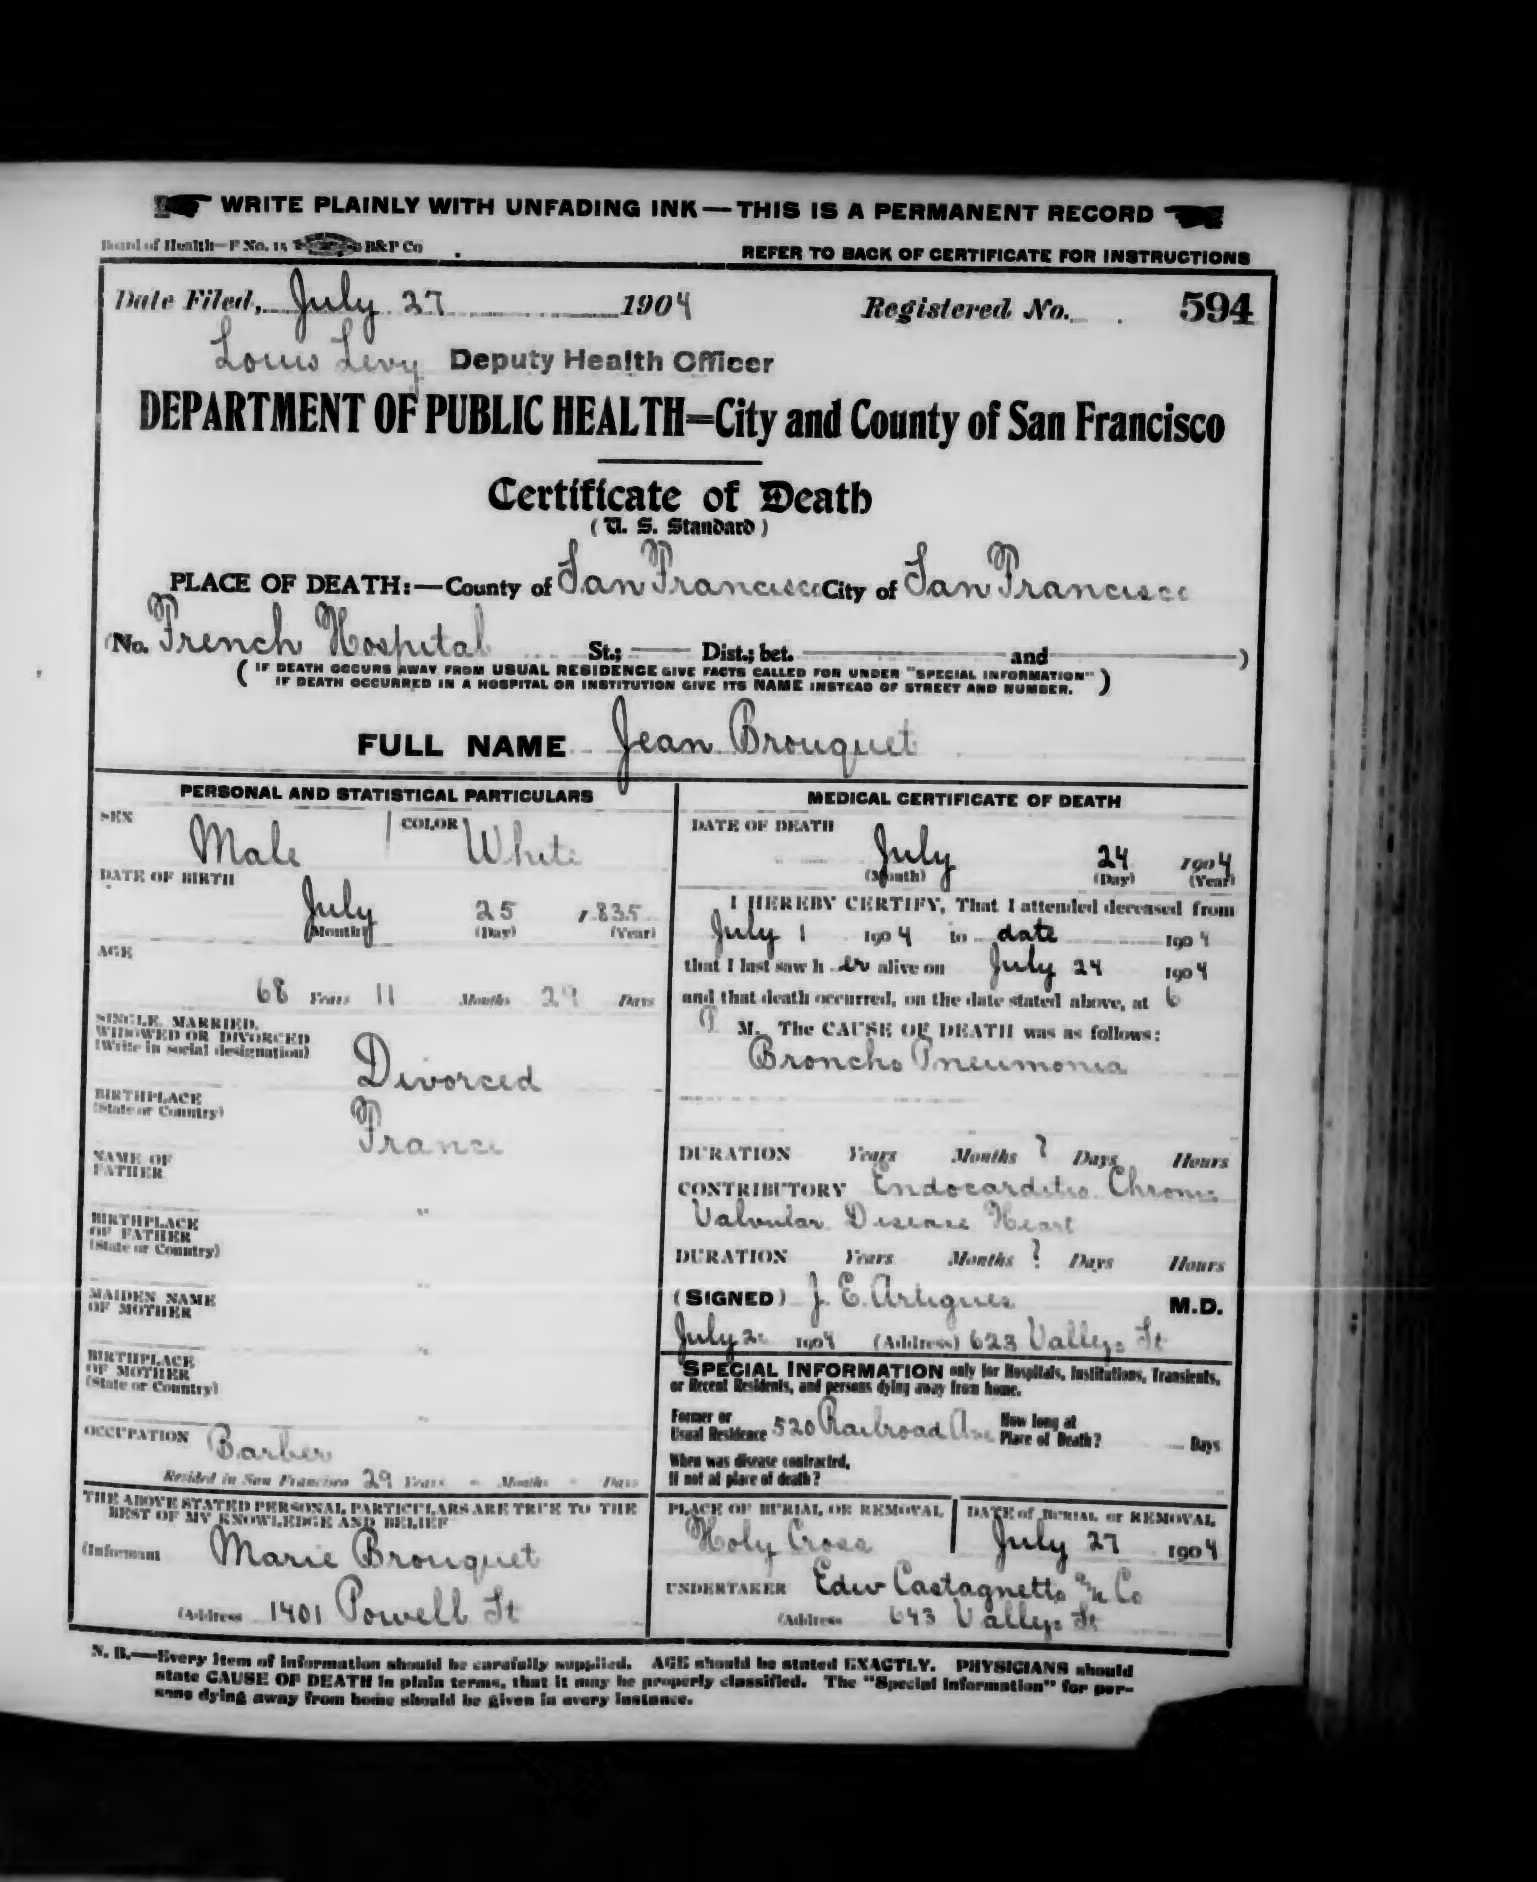 WRITE PLAINLY WITH UNFADING INK—THIS IS A PERMANENT RECORD
Board of Health—F No. 15 B&P Co
REFER TO BACK OF CERTIFICATE FOR INSTRUCTIONS
Date Filed, July 27 1904 Registered No. 594
Louis Levy Deputy Health Officer
DEPARTMENT OF PUBLIC HEALTH=City and County of San Francisco
Certificate of Death
(U. S. Standard)
PLACE OF DEATH:—County of San Francisco City of San Francisco
(No. French Hospital St.; —— Dist.; bet. —— and ——)
(IF DEATH OCCURS AWAY FROM USUAL RESIDENCE GIVE FACTS CALLED FOR UNDER "SPECIAL INFORMATION"
IF DEATH OCCURRED IN A HOSPITAL OR INSTITUTION GIVE ITS NAME INSTEAD OF STREET AND NUMBER.)
FULL NAME Jean Brouquet
PERSONAL AND STATISTICAL PARTICULARS
SEX Male COLOR White
DATE OF BIRTH
July 25 1835
(Month) (Day) (Year)
AGE
68 Years 11 Months 29 Days
SINGLE, MARRIED,
WIDOWED OR DIVORCED
(Write in social designation) Divorced
BIRTHPLACE
(State or Country) France
NAME OF
FATHER
"
BIRTHPLACE
OF FATHER
(State or Country)
"
MAIDEN NAME
OF MOTHER
"
BIRTHPLACE
OF MOTHER
(State or Country)
"
OCCUPATION Barber
Resided in San Francisco 29 Years - Months - Days
THE ABOVE STATED PERSONAL PARTICULARS ARE TRUE TO THE
BEST OF MY KNOWLEDGE AND BELIEF
(Informant Marie Brouquet
(Address 1401 Powell St
MEDICAL CERTIFICATE OF DEATH
DATE OF DEATH
July 24 1904
(Month) (Day) (Year)
I HEREBY CERTIFY, That I attended deceased from
July 1 1904 to date 1904
that I last saw h er alive on July 24 1904
and that death occurred, on the date stated above, at 6
P M. The CAUSE OF DEATH was as follows:
Broncho Pneumonia
DURATION Years Months ? Days Hours
CONTRIBUTORY Endocarditis Chronic
Valvular Disease Heart
DURATION Years Months ? Days Hours
(SIGNED) J. E. Artigues M.D.
July 1904 (Address) 623 Vallejo St
SPECIAL INFORMATION only for Hospitals, Institutions, Transients,
or Recent Residents, and persons dying away from home.
Former or
Usual Residence 520 Railroad Ave How long at
Place of Death? Days
When was disease contracted,
If not at place of death?
PLACE OF BURIAL OR REMOVAL
Holy Cross
DATE of BURIAL or REMOVAL
July 27 1904
UNDERTAKER Edw Castagnetto & Co
(Address 643 Vallejo St
N. B.—Every item of information should be carefully supplied. AGE should be stated EXACTLY. PHYSICIANS should
state CAUSE OF DEATH in plain terms, that it may be properly classified. The "Special Information" for per-
sons dying away from home should be given in every instance.